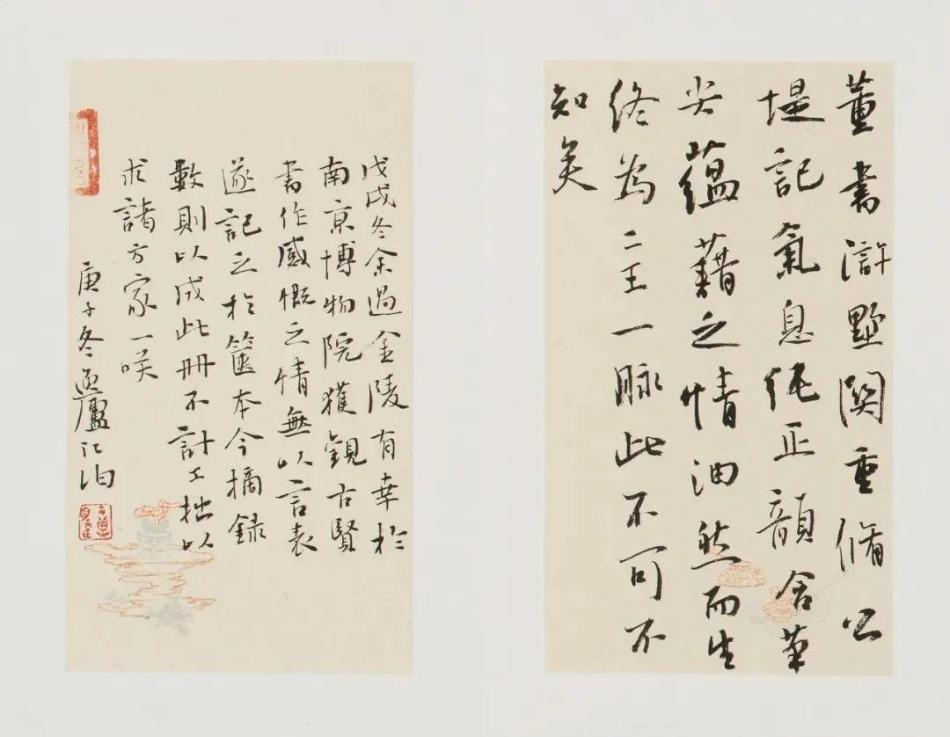 董書滸墅関重脩公
堤記氣息純正韻含筆
尖蘊藉之情油然而生
終為二王一脈此不可不
知矣
戊戌冬余過金陵有幸於
南京博物院獲觀古賢
書作感慨之情無以言表
遂記之於篋本今摘録
數則以成此冊不計工拙以
求諸方家一咲
庚子冬廬江